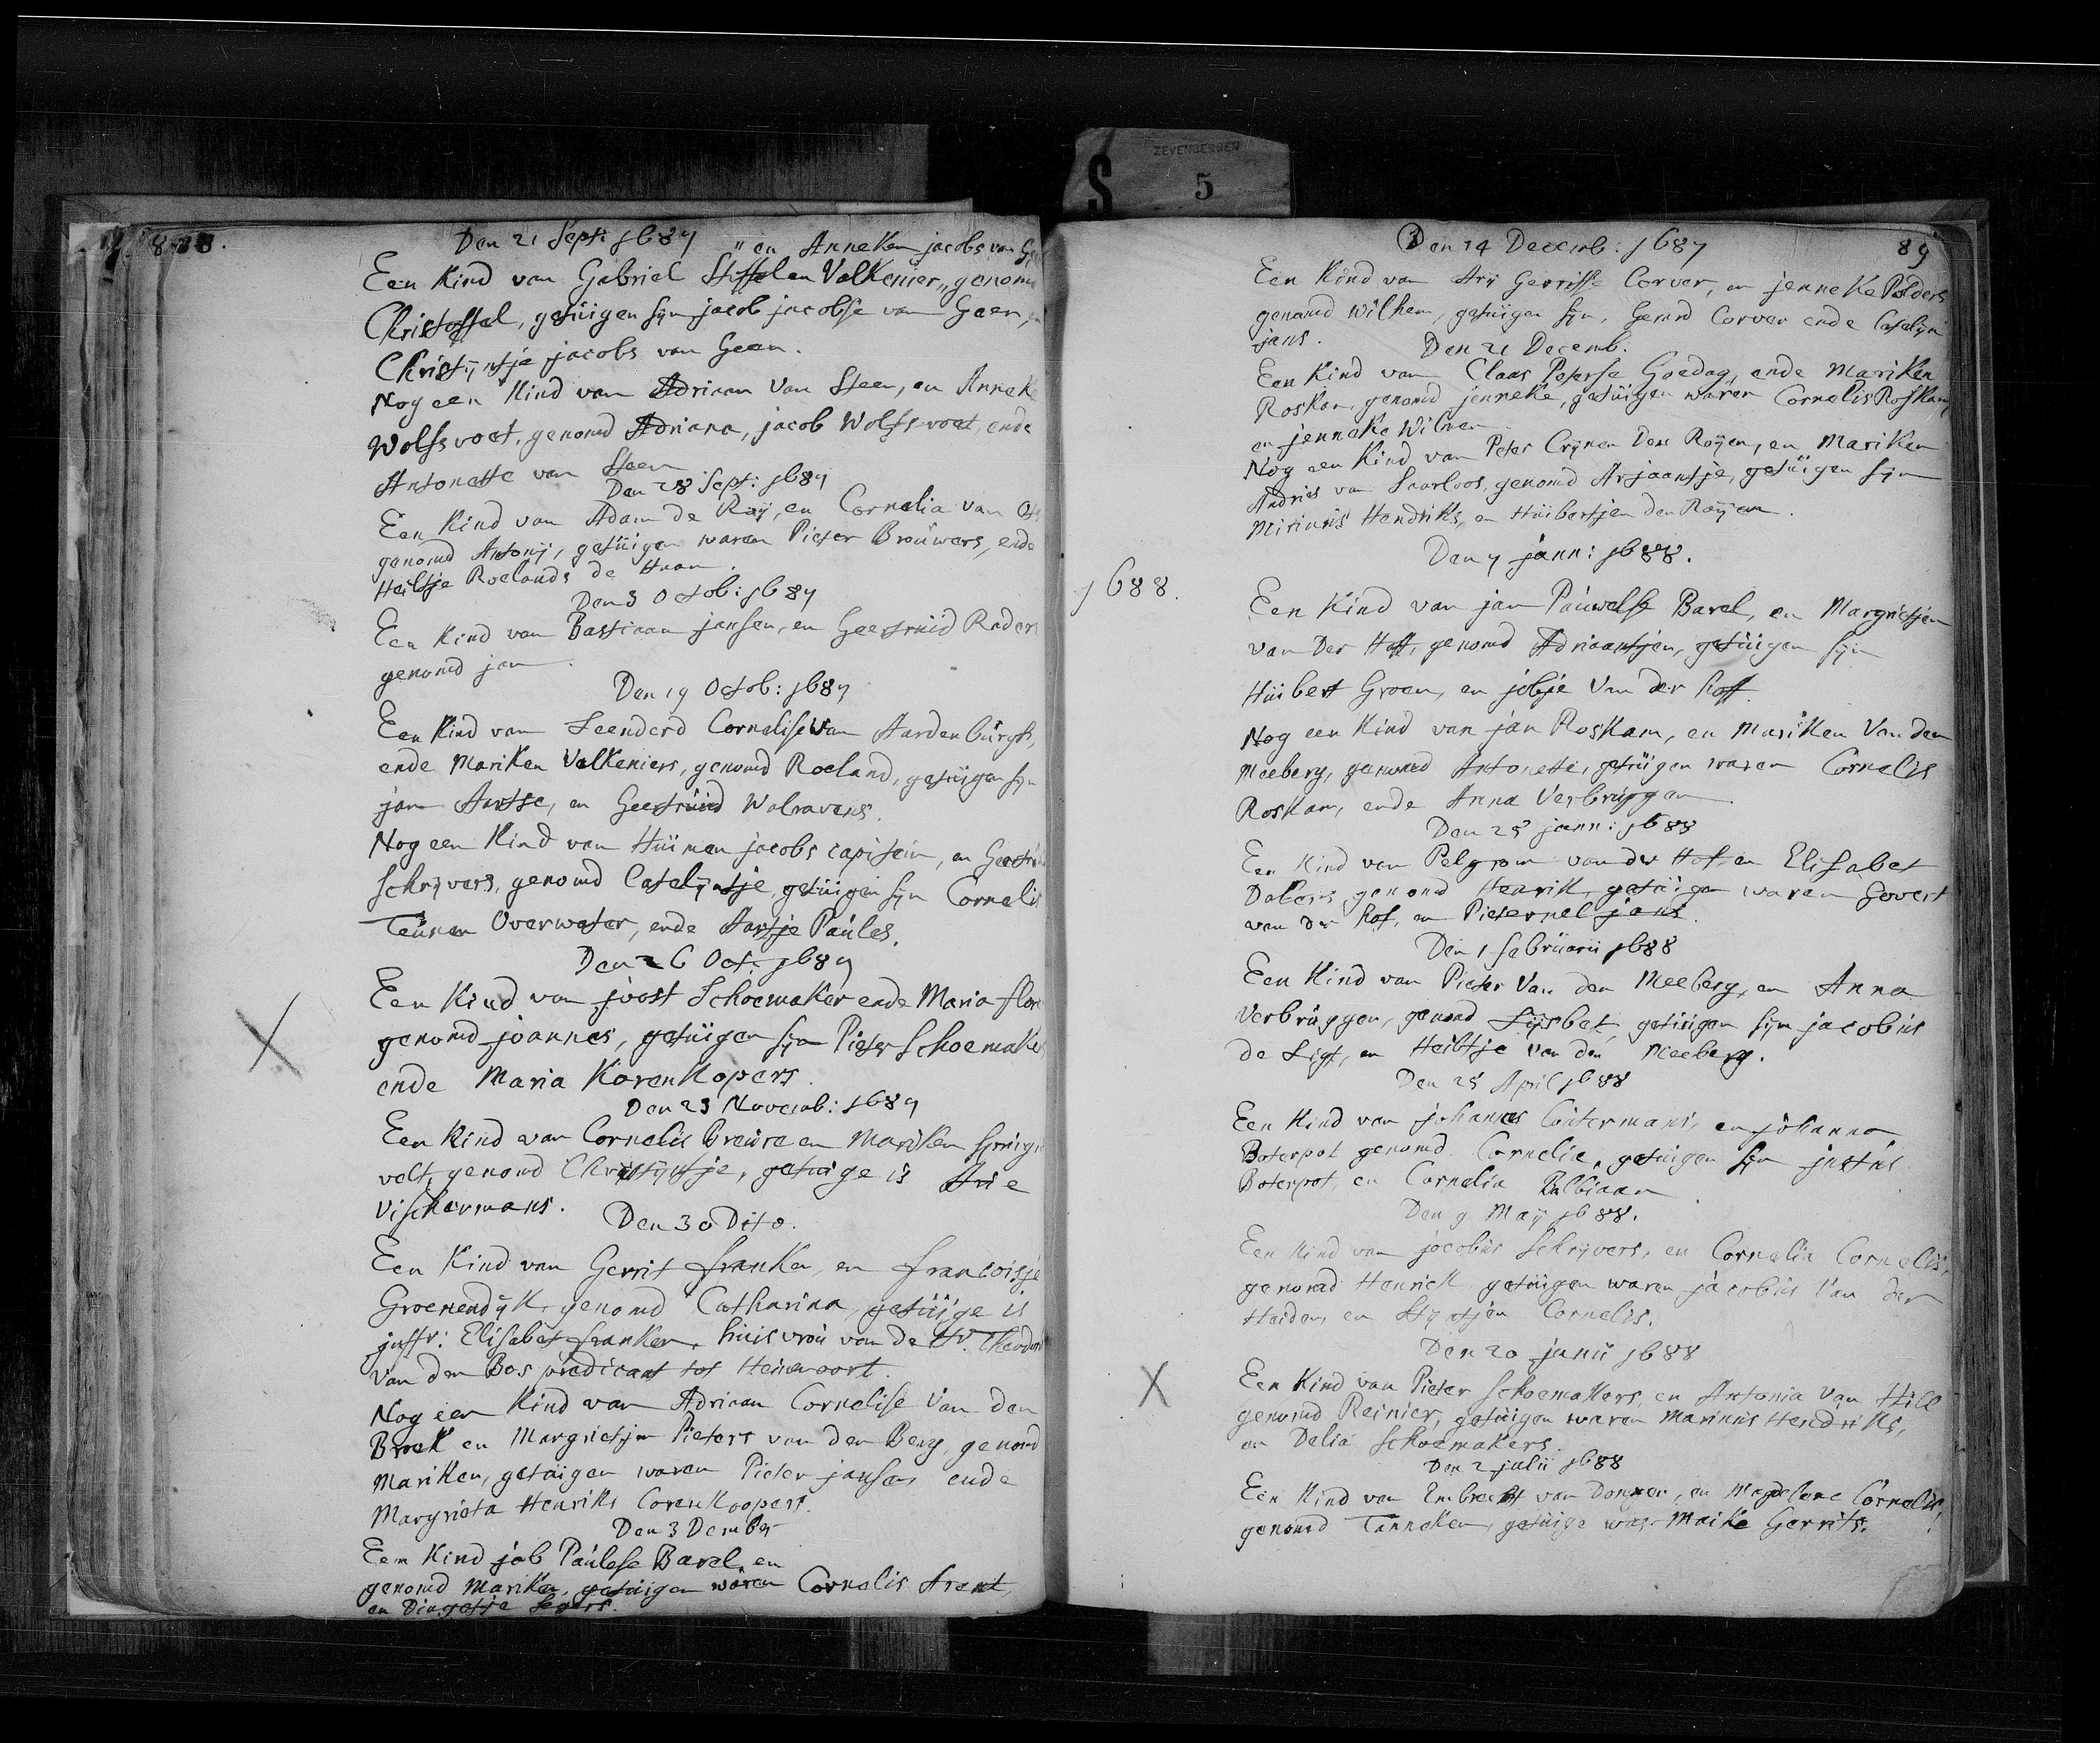 ZEVENBERGEN
S 5
88.
Den 21 Sept: 1687
" en Anneken jacobs van
Een Kind van Gabriel Stiffelen Valkenier,, genomd
Christoffel, getuigen sijn jacob jacobse van Geen,
Christijntje jacobs van Geen.
Nog een Kind van Adriaan Van Steen, en Anneke
Wolfsvoet, genomd Adriana, jacob Wolfsvoet, ende
Antonette van Steen
Den 28 Sept: 1687
Een Kind van Adam de Roij, en Cornelia van
genomd Antonij, getuigen waren Pieter Brouwers, ende
Heiltje Roelands de Haan.
Den 3 Octob: 1687
Een Kind van Bastiaan jansen, en Geertruid
genomd jan.
Den 19 Octob: 1687
Een Kind van Leenderd Cornelise Van Aardenburgh,
ende Mariken Valkeniers, genomd Roeland, getuigen sijn
jan Aartse, en Geertruid Walravens.
Nog een Kind van Huimen jacobs capitein, en
Schrijvers, genomd Catelijntje getuigen sijn Cornelis
Teunen Overwater, ende Aartje Paules.
Den 26 Oct: 1687
Een Kind van joost Schoemaker ende Maria
genomd joannes, getuigen sijn Pieter Schoemaker
ende Maria Korenkopers.
Den 23 Novemb: 1687
Een Kind van Cornelis Breure en Mariken
velt, genomd Christijntje, getuige is Arie
Vischermans.
Den 30 Dito.
Een Kind van Gerrit franken, en francoisje
Groenendijk, genomd Catharina, getuijge is
juffr: Elisabet franken, huisvrou van de Hr.
van den Bos predicant tot Heinenoort.
Nog een Kind van Adriaan Cornelise Van den
Broek en Margrietjen Pieters van den Berg, genomd
Mariken, getuigen waren Pieter jansen ende
Margrieta Henriks Corenkoopers.
Den 3 Dember
Een Kind job Paulese Barel, en
genomd Mariken, getuigen waren Cornelis Arent,
en Dingetje Segers.
Den 14 Decemb: 1687
89
Een Kind van Arij Gerrisse Corver, en jenneke Polders
genamd Wilhem, getuigen sijn, Gerrid Corver ende Catelijn
jans.
Den 21 Decemb.
Een Kind van Claas Peterse Goedag, ende Mariken
Roskam, genomd jenneke, getuigen waren Cornelis Roskam,
en jenneke Wilmen
Nog een Kind van Peter Crijnen Den Roijen, en Mariken
Andries van Saarloos, genomd Arjaantje, getuigen sijn
Mirinus Hendriks, en Huibertjen Den Roijen.
Den 4 jann: 1688.
1688.
Een Kind van jan Pauwelse Barel, en Margrietjen
van Der Hoff, genomd Adriaantjen, getuigen sijn
Huibert Groen, en jobje Van der hoff.
Nog een Kind van jan Roskam, en Mariken Van den
Meeberg, genomd Antonette, getuigen waren Cornelis
Roskam, ende Anna Verbruggen.
Den 25 jann: 1688
Een Kind van Pelgrom van der Hof, en Elisabet
genomd Henrik, getuigen waren Govert
van der hof, en Pieternel jans.
Den 1 februarii 1688
Een Kind van Pieter Van den Meeberg, en Anna
Verbruggen, genomd Lijsbet, getuigen sijn jacobus
de Ligt, en Heiltje Van den Meeberg.
Den 25 April 1688
Een Kind van johannes Coutermans, en johanna
Boterpot genomd Cornelia, getuigen sijn justus
Boterpot, en Cornelia
Den 9 Maij 1688.
Een Kind van jacobus Schrijvers, en Cornelia Cornelis,
genomd Henrick getuigen waren jacobus Van der
Heiden, en Stijntjen Cornelis.
Den 20 junii 1688
Een Kind van Pieter Schoemakers, en Antonia Van Hill
genomd Reinier, getuigen waren Marinus Hendriks,
en Delia Schoemakers.
Den 2 julii 1688
Een Kind van Embrecht van Donger, en Magdalena Cornelis,
genomd Tanneken, getuige was Maike Gerrits.